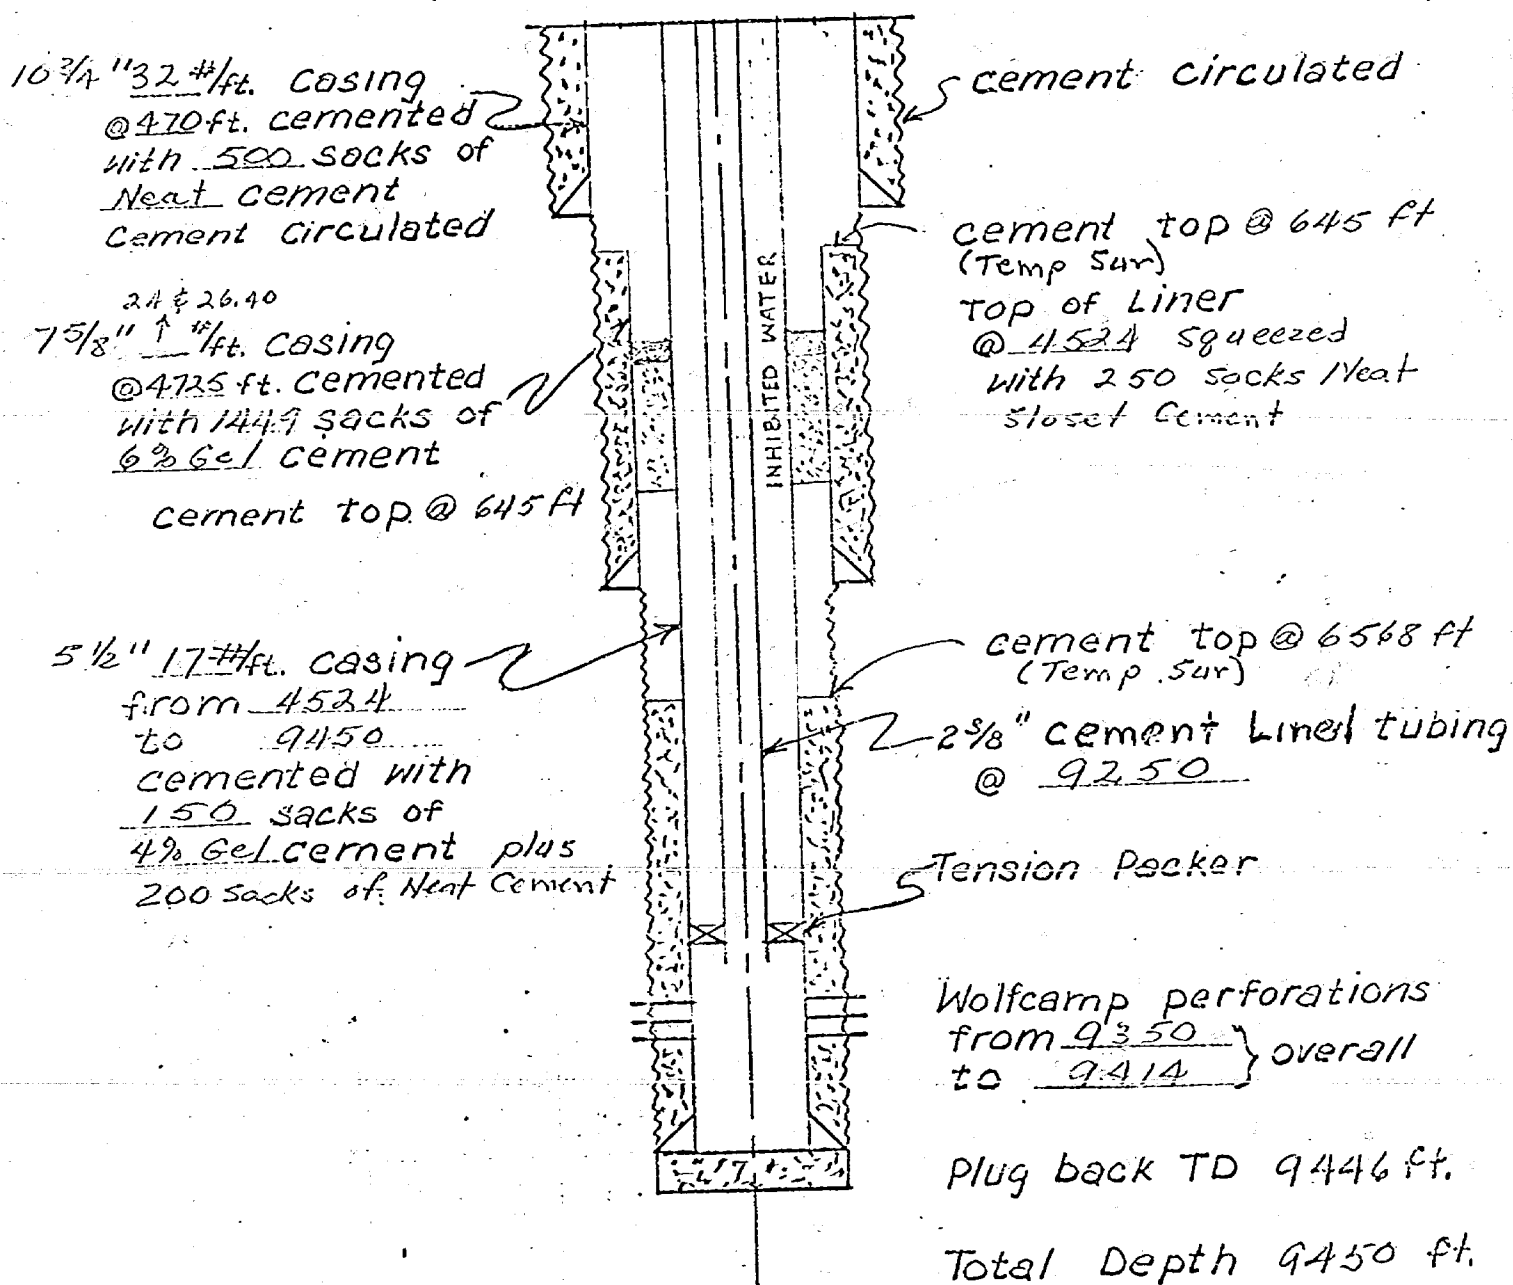 10 3/4" 32 #/ft. casing
@ 470 ft. cemented
with 500 sacks of
Neat cement
Cement circulated
24 & 26.40
7 5/8" ↑ #/ft. casing
@ 4725 ft. cemented
with 1449 sacks of
6% Gel cement
cement top @ 645 ft
5 1/2" 17 #/ft. casing
from 4524
to 9450
cemented with
150 sacks of
4% Gel cement plus
200 sacks of Neat Cement
INHIBITED WATER
cement circulated
cement top @ 645 ft
(Temp Sur)
Top of Liner
@ 4524 squeezed
with 250 sacks Neat
Sloset Cement
cement top @ 6568 ft
(Temp. Sur)
2 3/8" cement Lined tubing
@ 9250
Tension Packer
Wolfcamp perforations
from 9350
to 9414 } overall
Plug back TD 9446 ft.
Total Depth 9450 ft.